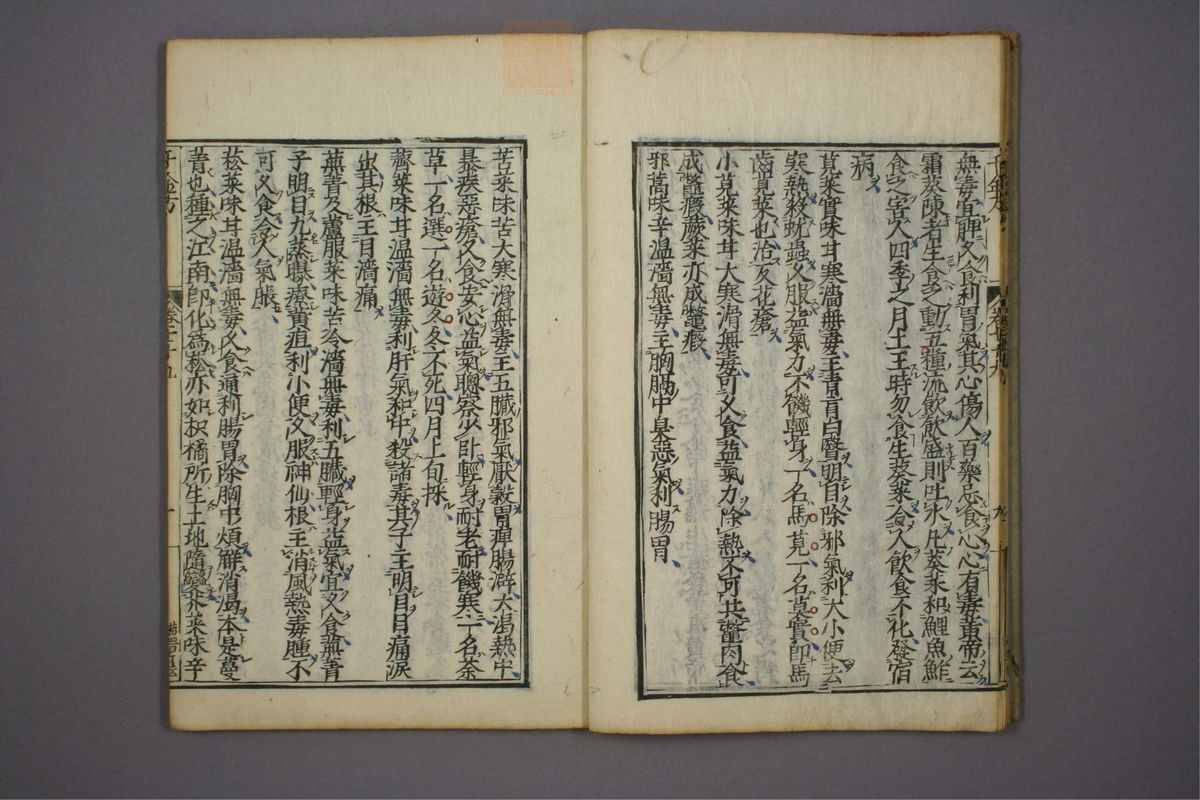 無毒宜脾久食利胃氣其心傷人百藥忌食心心有毒黄帝云
霜葵陳者生食之動五種流飲飲盛則吐水凡葵菜和鯉魚鮓
食之害人四季之月土王時勿食生葵菜令人飲食不化發宿
病
莧菜實味甘寒濇無毒主青盲白瞖明目除邪氣利大小便去
寒熱殺蚘蟲久服益氣力不饑輕身一名馬莧一名莫實即馬
齒莧菜也治反花瘡
小莧菜味甘大寒滑無毒可久食益氣力除熱不可共鼈肉食
成鼈癥蕨菜亦成鼈瘕
邪蒿味辛温濇無毒主胸膈中臭惡氣利腸胃
苦菜味苦大寒滑無毒主五臟邪氣厭穀胃痺腸澼大渴熱中
暴疾惡瘡久食安心益氣聰察少臥輕身耐老耐饑寒一名荼
草一名選一名遊冬冬不死四月上旬採
薺菜味甘温濇無毒利肝氣和中殺諸毒其子主明目目痛淚
出其根主目濇痛
蕪菁及蘆服菜味苦冷濇無毒利五臟輕身益氣宜久食蕪菁
子明目九蒸曝療黄疸利小便久服神仙根主消風熱毒腫不
可久食令人氣脹
菘菜味甘温濇無毒久食通利腸胃除胸中煩解消渴本是蔓
菁也種之江南即化為菘亦如枳橘所生土地隨變芥菜味辛
千金方
卷二十九